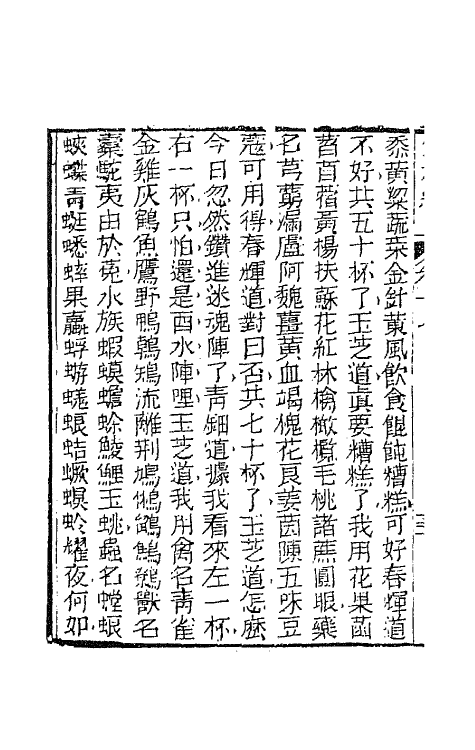 黍黃粱蔬菜金針蕈風飲食餛飩糟糕可好春輝道
不好共五十杯了玉芝道眞要糟糕了我用花果菡
萏百蕕黃楊扶蘇花紅林檎橄欖毛桃諸蔗圓眼藥
名芎藭漏盧阿魏薑黃血竭槐花良姜茵陳五味豆
蔻可用得春輝道對曰否共七十杯了玉芝道怎麽
今日忽然鑽進迷魂陣了靑鈿道據我看來左一杯
右一杯只怕還是酉水陣哩玉芝道我用禽名靑雀
金雞灰鶴魚鷹野鴨鶉鴙流離荆鳩鵂鶹鷦鷯獸名
橐駝夷由於菟水族蝦蟆蟾蜍鯪鯉玉珧蟲名螳蜋
蛺蝶靑蜓蟋蟀果蠃蜉蝣蜣蜋蛣蟩螟蛉耀夜何如